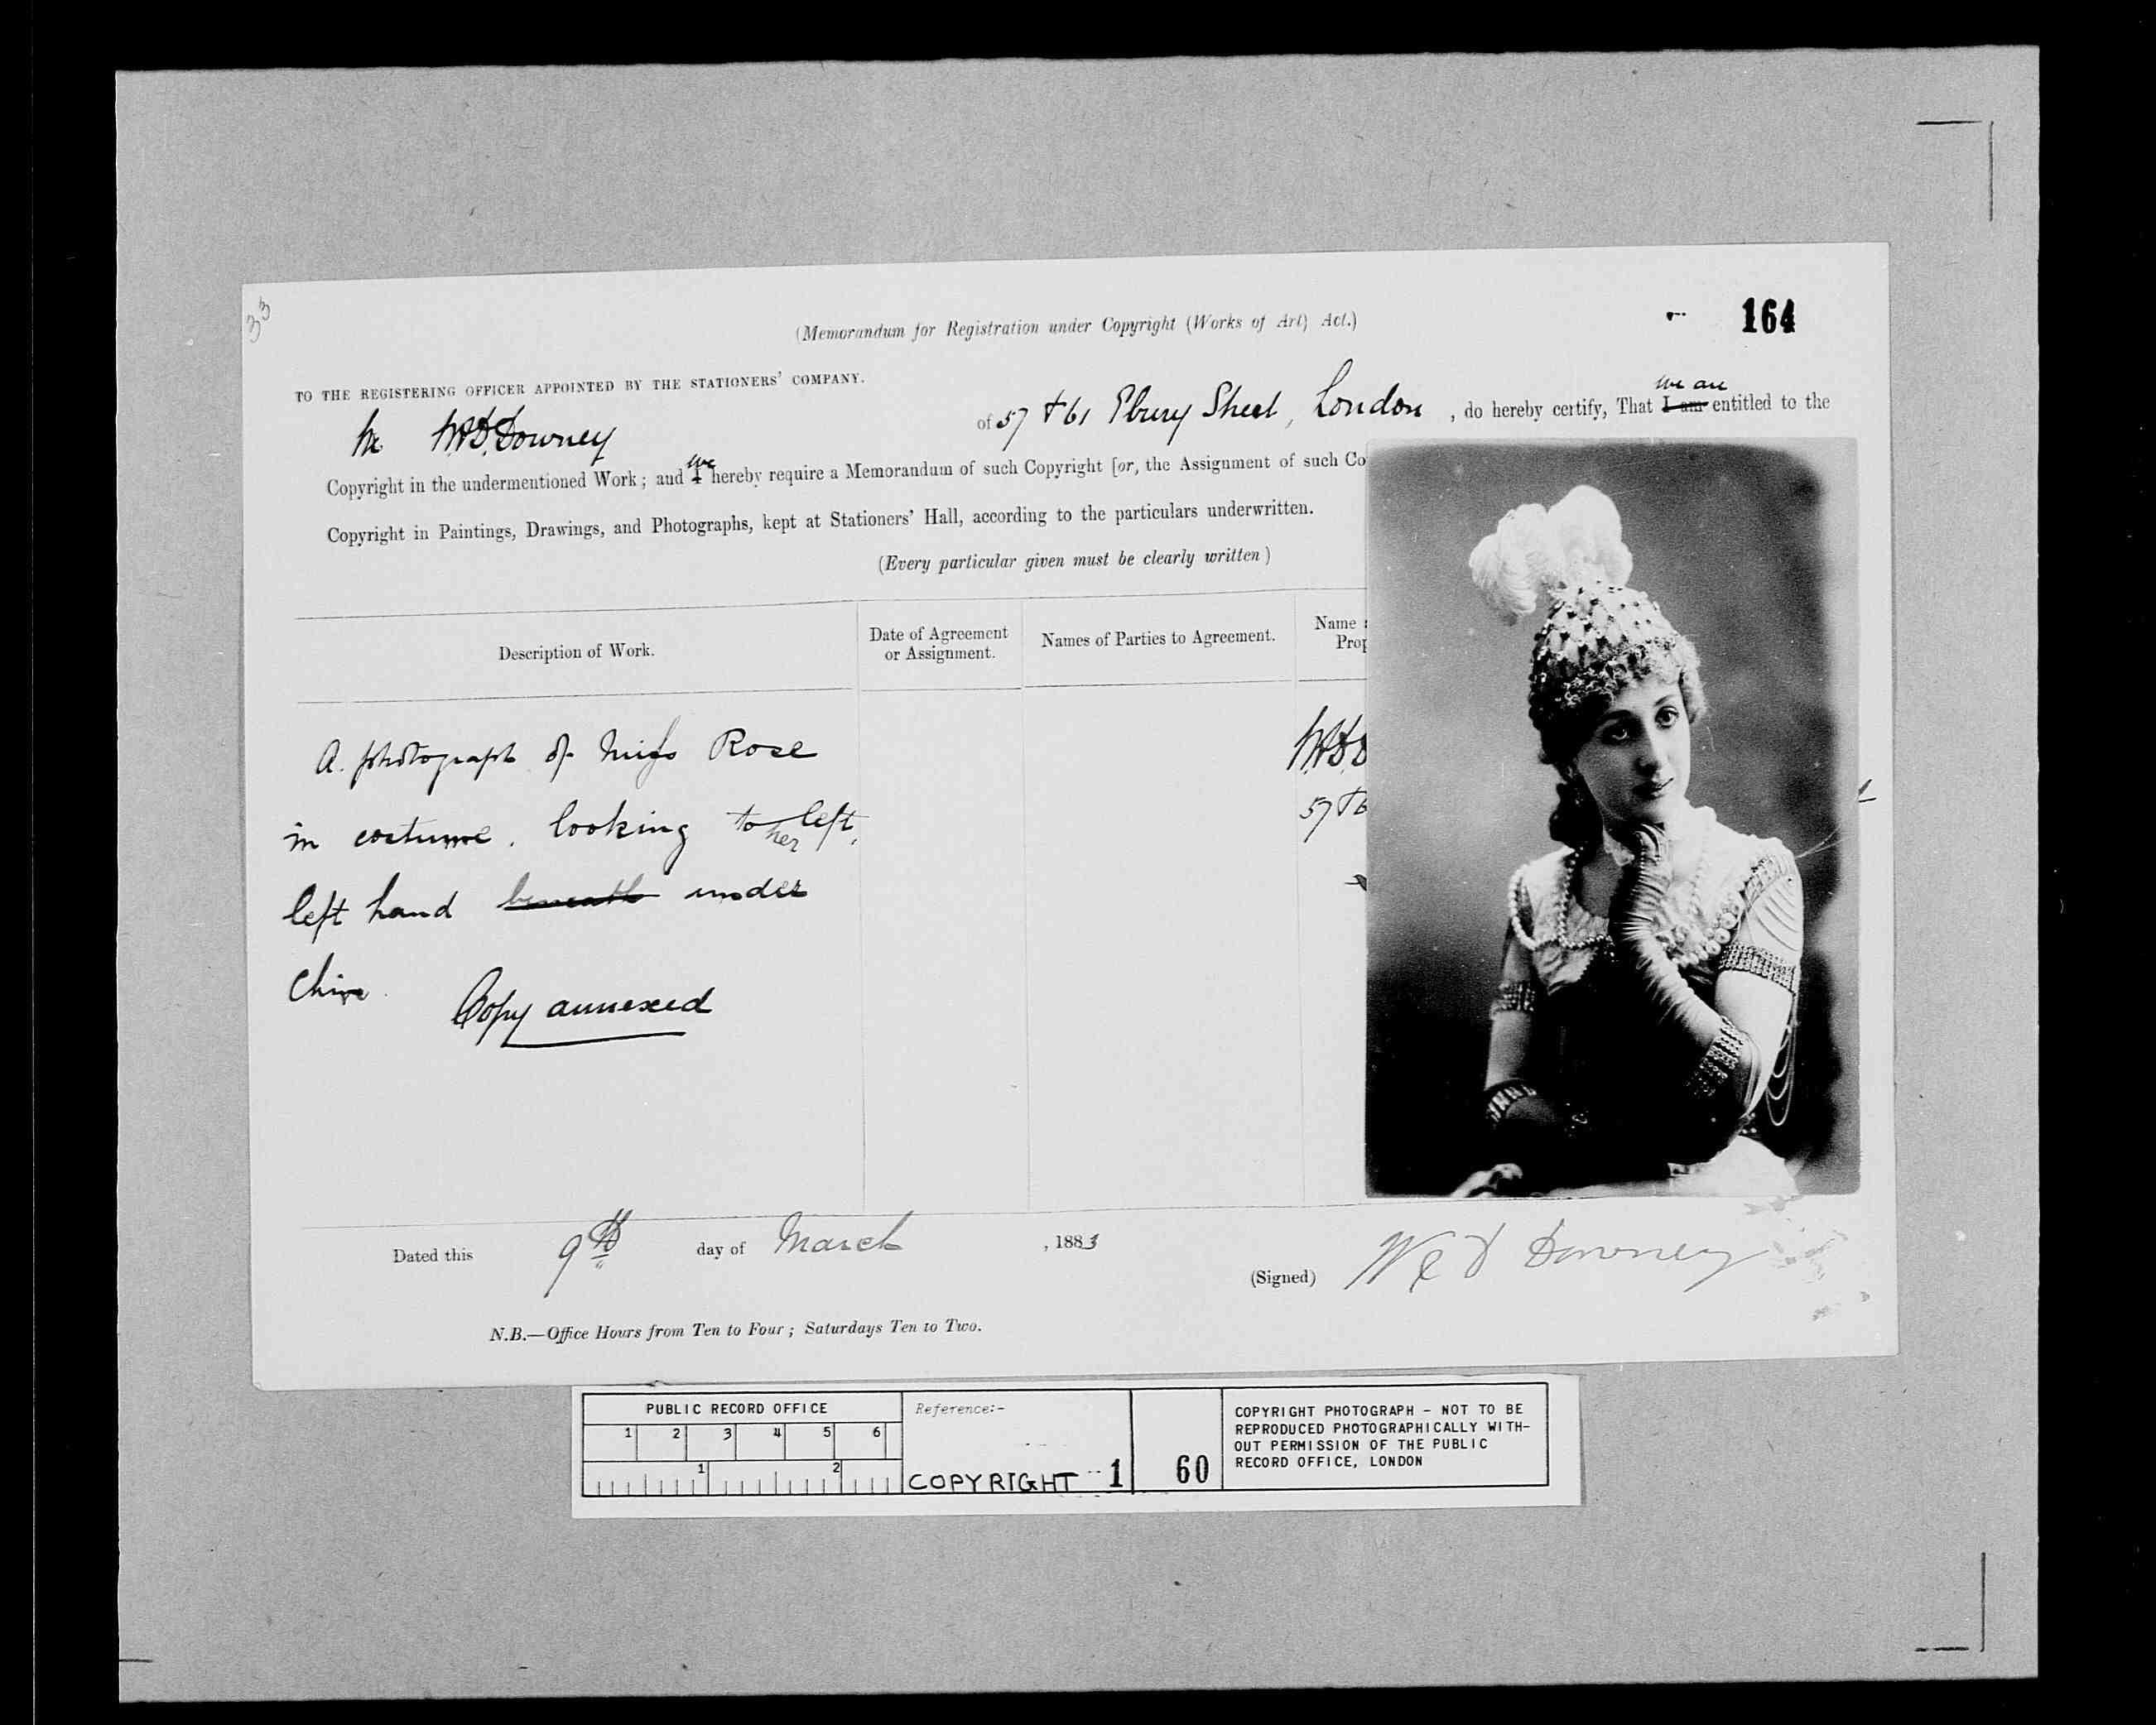 33
(Memorandum for Registration under Copyright (Works of Art) Act.)
164
TO THE REGISTERING OFFICER APPOINTED BY THE STATIONERS' COMPANY.
We W&D Downey of 57 & 61 Ebury Street, London, do hereby certify, That we are I am entitled to the
Copyright in the undermentioned Work; and we I hereby require a Memorandum of such Copyright [or, the Assignment of such Co
Copyright in Paintings, Drawings, and Photographs, kept at Stationers' Hall, according to the particulars underwritten.
(Every particular given must be clearly written)
Description of Work.
Date of Agreement
or Assignment.
Names of Parties to Agreement.
Name
Prop
A photograph of Miss Rose
in costume, looking to her left,
left hand beneath under
chin.
Copy annexed
W&D D
57 & 6
Dated this 9th day of March, 1883
(Signed) W & D Downey
N.B.—Office Hours from Ten to Four; Saturdays Ten to Two.
PUBLIC RECORD OFFICE
1 2 3 4 5 6
1 2
Reference:-
COPYRIGHT 1
60
COPYRIGHT PHOTOGRAPH - NOT TO BE
REPRODUCED PHOTOGRAPHICALLY WITH-
OUT PERMISSION OF THE PUBLIC
RECORD OFFICE, LONDON